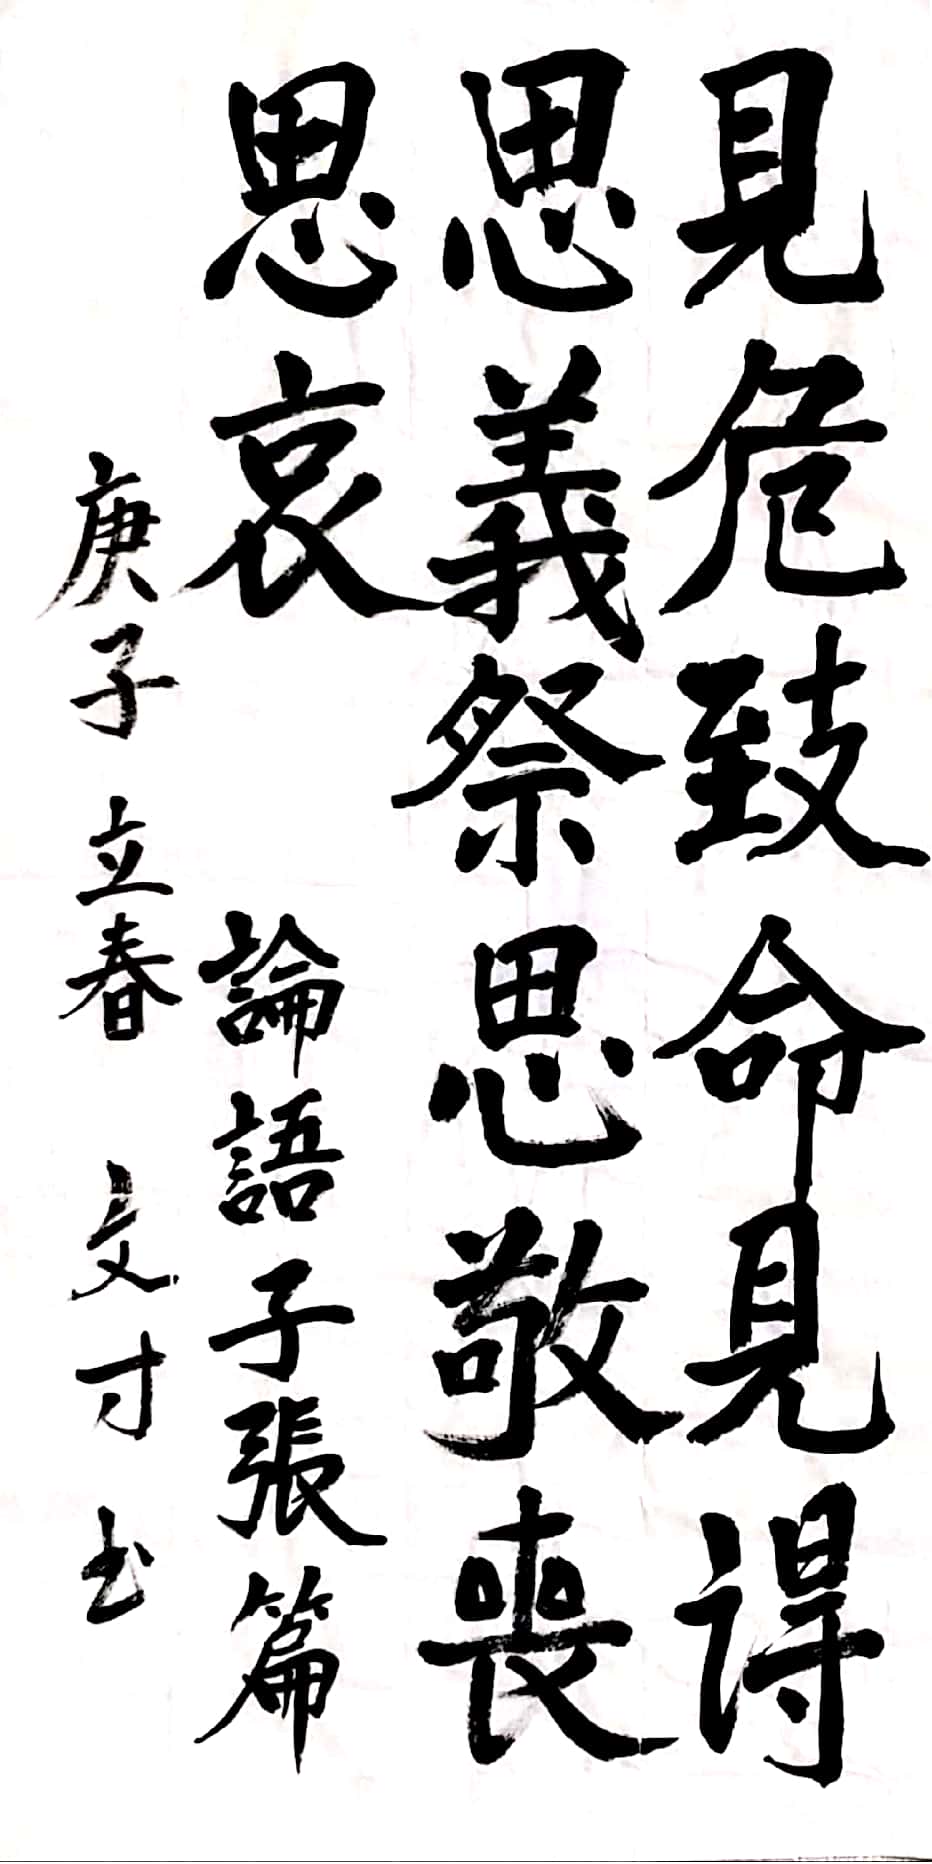 見危致命見得
思義祭思敬喪
思哀
論語子張篇
庚子 立春 文才书